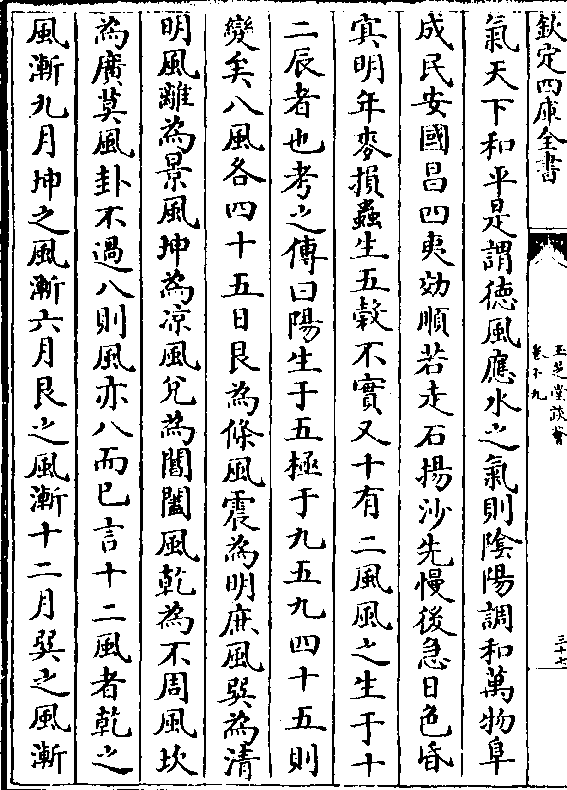 欽定四庫全書
玉芝堂談薈
卷十九
三十七
氣天下和平是謂徳風應水之氣則隂陽調和萬物阜
成民安國昌四夷効順若走石揚沙先慢後急日色昏
寘明年麥損蟲生五穀不實又十有二風風之生于十
二辰者也考之傳曰陽生于五極于九五九四十五則
變矣八風各四十五日艮為條風震為明庶風巽為清
明風離為景風坤為凉風兌為閶闔風乾為不周風坎
為廣莫風卦不過八則風亦八而已言十二風者乾之
風漸九月坤之風漸六月艮之風漸十二月巽之風漸